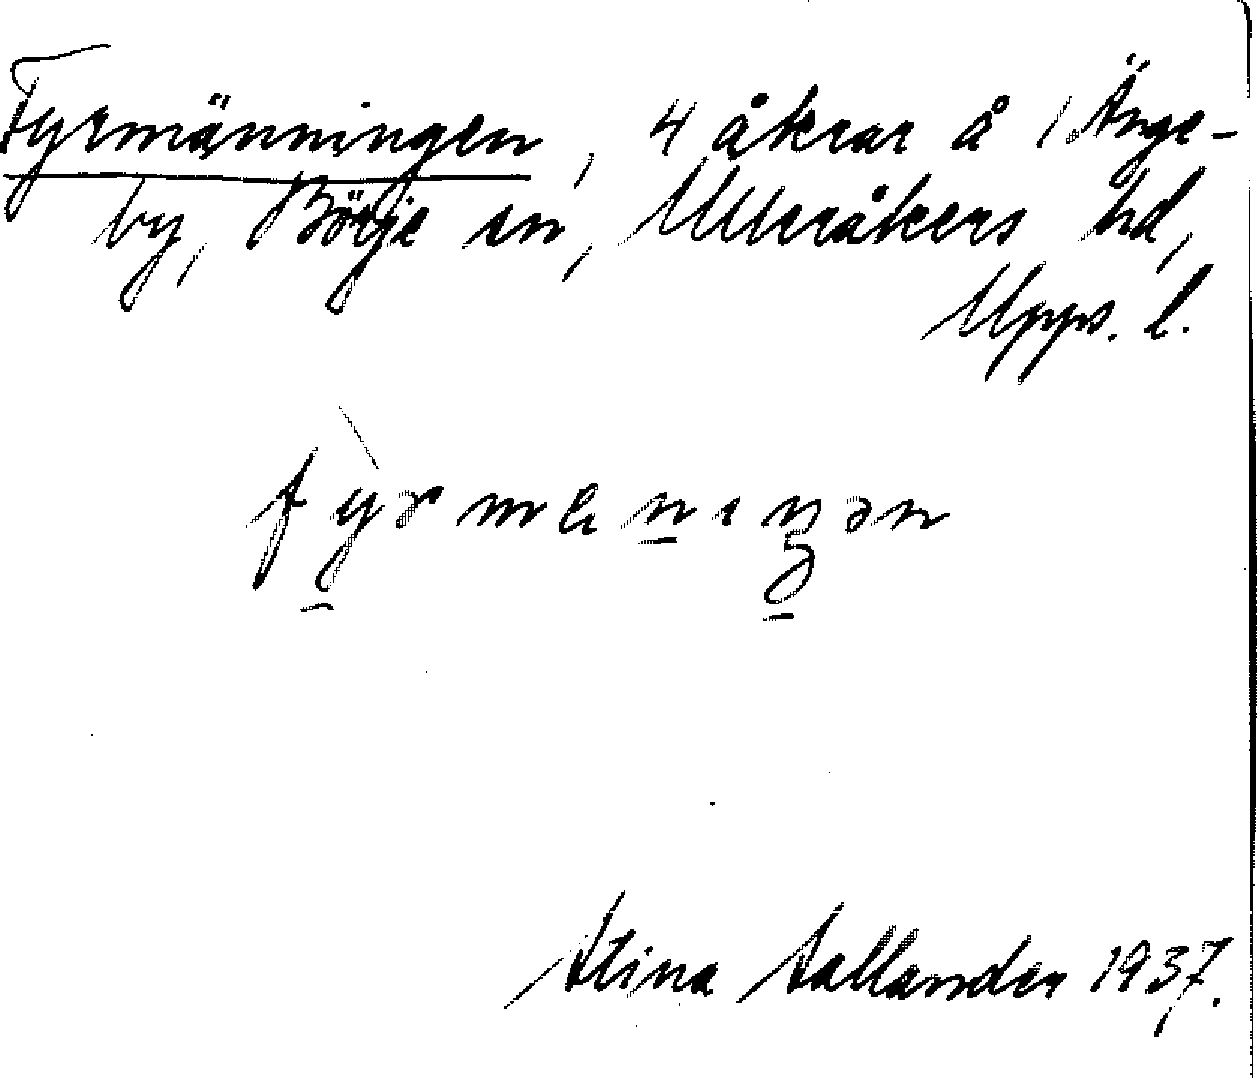 Fyrmänningen, 4 åkrar å 1 Änge-
by, Börje sn, Ulleråkers hd,
Upps. l.
fỳrmenıŋən
Stina Sallander 1937.